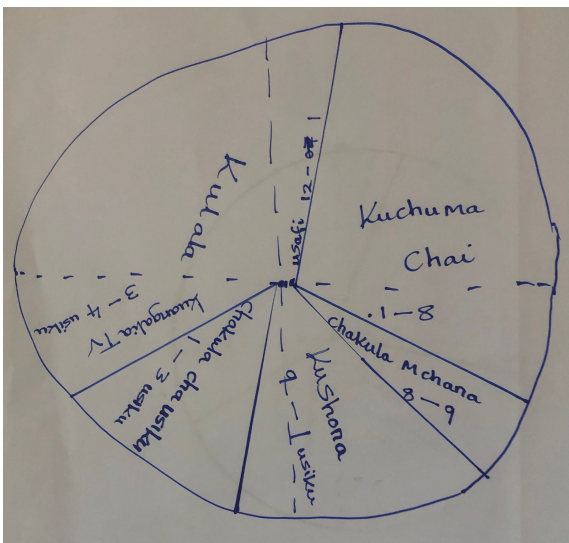 usafi 12-1
Kuchuma
Chai
1-8
Chakula Mchana
8-9
Kushona
9-1 usiku
Chakula cha usiku
1-3 usiku
Kuangalia TV
3-4 usiku
Kulala